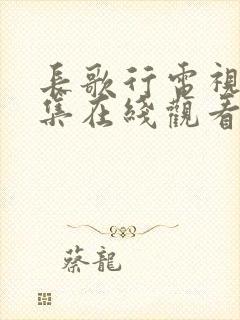 長歌行電視
集在綫觀看
蔡龍